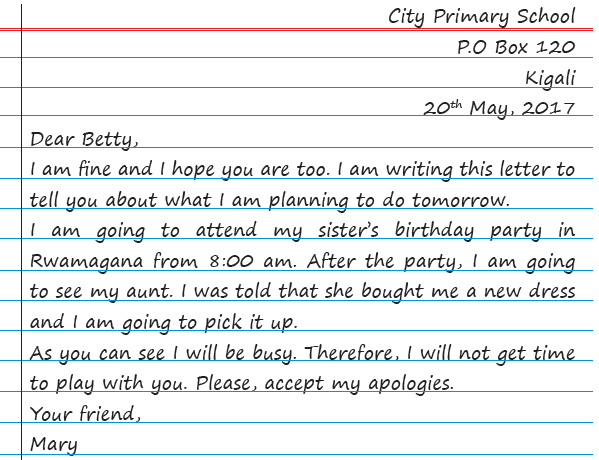 City Primary School
P.O Box 120
Kigali
20th May, 2017
Dear Betty,
I am fine and I hope you are too. I am writing this letter to
tell you about what I am planning to do tomorrow.
I am going to attend my sister's birthday party in
Rwamagana from 8:00 am. After the party, I am going
to see my aunt. I was told that she bought me a new dress
and I am going to pick it up.
As you can see I will be busy. Therefore, I will not get time
to play with you. Please, accept my apologies.
Your friend,
Mary